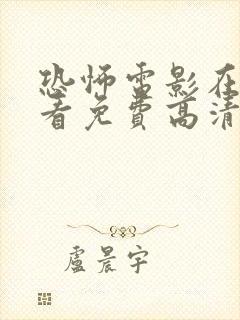 恐怖電影在
看免費高清
盧晨宇